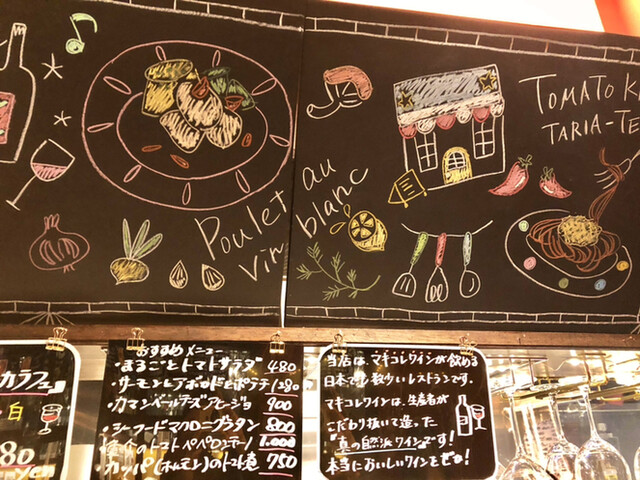 Poulet au
vin blanc
TOMATO K
TARIA-TE
カラフェ
白
80
yen
おすすめメニュー
・まるごとトマトサラダ 480
・サーモンとアボカドとポテラ 1280
・カマンベールチーズアヒージョ 900
・シーフードマカロニグラタン 800
のトマトペペロンチーノ 1,000
・カッパ(ホルモン)のトマト煮 750
当店は、マキコレワインが飲める
日本でも数少ないレストランです。
マキコレワインは、生産者が
こだわり抜いて造った
"真の自然派ワイン"です!
本当においしいワインをぜひ!